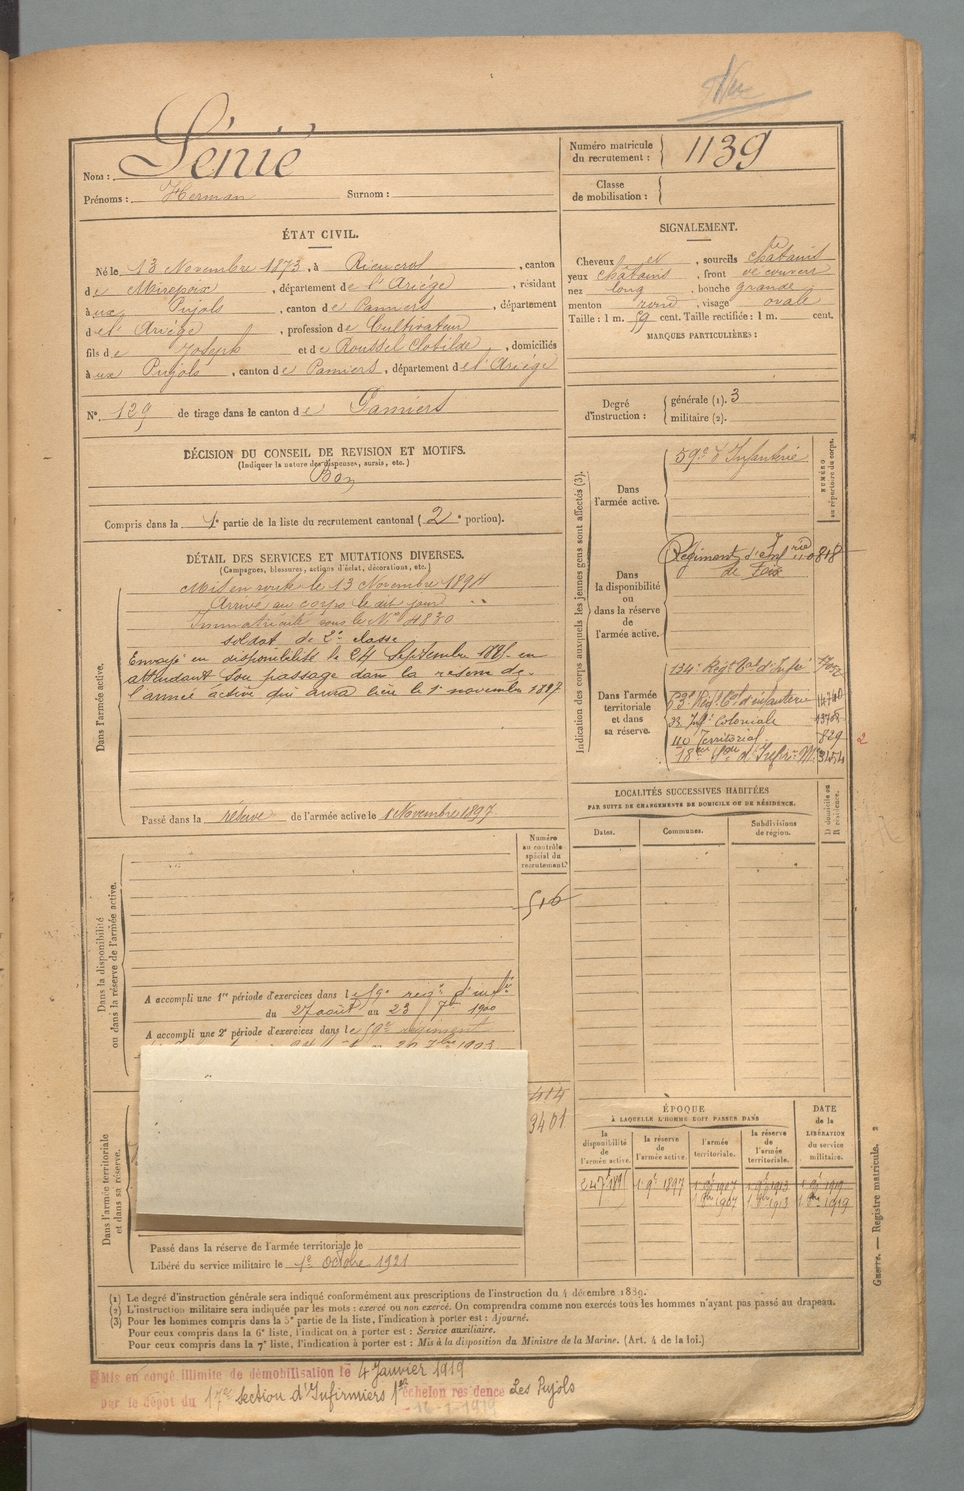 Numéro matricule
du recrutement : 1139
Nom : Génié
Prénoms : Herman Surnom :
Classe
de mobilisation :
ÉTAT CIVIL.
Né le 13 Novembre 1873, à Rieucros, canton
de Mirepoix, département de l'Ariège, résidant
à ux Pujols, canton de Pamiers, département
de l'Ariège, profession de Cultivateur
fils de Joseph et de Roussel Clotilde, domiciliés
à ux Pujols, canton de Pamiers, département de l'Ariège
N° 129 de tirage dans le canton de Pamiers
SIGNALEMENT.
Cheveux et, sourcils châtains
yeux châtains, front découvert
nez long, bouche grande
menton rond, visage ovale
Taille : 1 m. 59 cent. Taille rectifiée : 1 m. cent.
MARQUES PARTICULIÈRES :
Degré
d'instruction :
générale (1). 3
militaire (2).
DÉCISION DU CONSEIL DE REVISION ET MOTIFS.
(Indiquer la nature des dispenses, sursis, etc.)
Bon
Compris dans la 1e partie de la liste du recrutement cantonal (2e portion).
DÉTAIL DES SERVICES ET MUTATIONS DIVERSES.
(Campagnes, blessures, actions d'éclat, décorations, etc.)
Dans l'armée active.
Mis en route le 13 Novembre 1894
Arrivé au corps le dit jour
Immatriculé sous le N° 4830
soldat de 2e classe
Envoyé en disponibilité le 24 Septembre 1895 en
attendant son passage dans la réserve de
l'armée active qui aura lieu le 1er novembre 1897
Passé dans la réserve de l'armée active le 1 Novembre 1897
Indication des corps auxquels les jeunes gens sont affectés (3).
NUMÉRO
au répertoire du corps.
Dans
l'armée active.
59e d'Infanterie
Dans
la disponibilité
ou
dans la réserve
de
l'armée active.
Régiment d'Infrie
de Foix
0818
Dans l'armée
territoriale
et dans
sa réserve.
134e Régt Tal d'Infie
53e Régt Cal d'infanterie
33 Infie Coloniale
110 Territorial 829
18em Son d'Infirs Mres 3454
2
LOCALITÉS SUCCESSIVES HABITÉES
PAR SUITE DE CHANGEMENTS DE DOMICILE OU DE RÉSIDENCE.
Dates. Communes. Subdivisions
de région.
D domicile ou
R résidence.
Dans la disponibilité
ou dans la réserve de l'armée active.
Numéro
au contrôle
spécial du
recrutement.
516
A accompli une 1re période d'exercices dans le 59e régt d'infie
du 27 août au 23 7bre 1900
A accompli une 2e période d'exercices dans le 59e régiment
20 7bre 1903
414
3401
Dans l'armée territoriale
et dans sa réserve.
ÉPOQUE
À LAQUELLE L'HOMME DOIT PASSER DANS
DATE
de la
LIBÉRATION
du service
militaire.
la
disponibilité
de
l'armée active.
la réserve
de
l'armée active.
l'armée
territoriale.
la réserve
de
l'armée
territoriale.
24 7bre 1895 1 9bre 1897 1 9bre 1907 1 9bre 1913 1 9bre 1919
1 8bre 1907 1 8bre 1913 1 8bre 1919
Passé dans la réserve de l'armée territoriale le
Libéré du service militaire le 1er Octobre 1921
(1) Le degré d'instruction générale sera indiqué conformément aux prescriptions de l'instruction du 4 décembre 1889.
(2) L'instruction militaire sera indiquée par les mots : exercé ou non exercé. On comprendra comme non exercés tous les hommes n'ayant pas passé au drapeau.
(3) Pour les hommes compris dans la 5e partie de la liste, l'indication à porter est : Ajourné.
Pour ceux compris dans la 6e liste, l'indication à porter est : Service auxiliaire.
Pour ceux compris dans la 7e liste, l'indication à porter est : Mis à la disposition du Ministre de la Marine. (Art. 4 de la loi.)
Guerre. — Registre matricule. 2
Mis en congé illimité de démobilisation le 4 Janvier 1919
par le dépôt du 17e section d'Infirmiers 1er échelon résidence Les Pujols